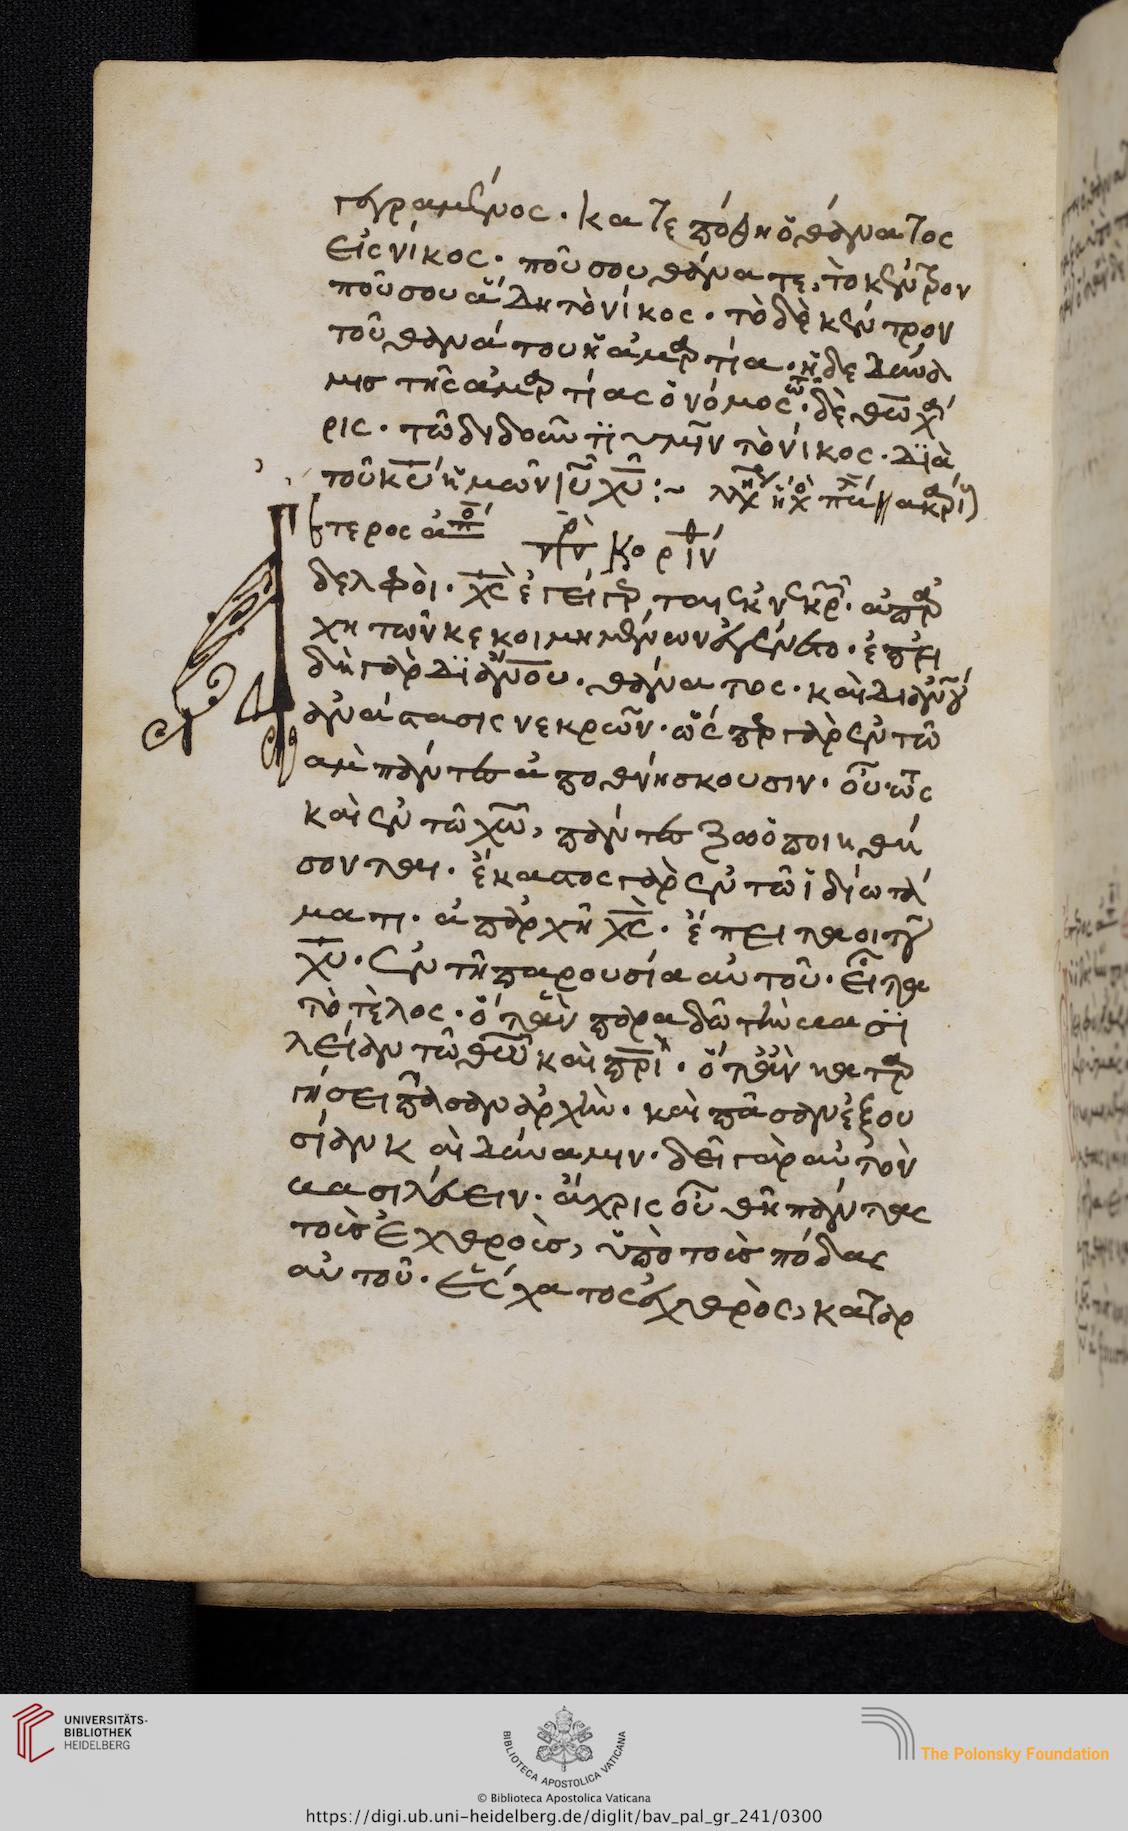 γεγραμμένος. κατεπόθη ὁ θάνατος
εἰς νίκος. ποῦ σου θάνατε, τὸ κέντρον
ποῦ σου ἅδη τὸ νίκος. τὸ δὲ κέντρον
τοῦ θανάτου ἡ ἁμαρτία. ἡ δὲ δύνα
μις τῆς ἁμαρτίας ὁ νόμος. τῶ δὲ θω χά
ρις. τῶ διδοῦντϊ ὑμῖν τὸ νίκος. δϊὰ
τοῦ κυ ἡμῶν ιυ χυ :~
ἕτερος ἀπό πρ Κοριν
δελφοὶ. χς ἐγείγερται ἐκ νεκρ. ἀπαρ
χὴ τῶν κεκοιμημένων ἐγένετο. ἐπει
δὴ γὰρ δϊ ἀνου. θάνατος. καὶ δι ἀνου
ἀνάστασις νεκρῶν. ὥσπερ γὰρ ἐν τῶ
αμ πάντες ἀποθνήσκουσιν. οὕτως
καὶ ἐν τῶ χω, πάντες ζωοποιηθή
σονται. ἕκαστος γὰρ ἐν τῶ ἰδίω τάγ
ματι. ἀπαρχὴ χς. ἔπειτα οἱ τοῦ
χυ. ἐν τῆ παρουσία αὐτοῦ. εἶτα
τὸ τέλος. ὅταν παραδῶ τὴν βασϊ
λείαν τῶ θεῶ καὶ πρι. ὅταν καταρ
γήσει πᾶσαν ἀρχὴν. καὶ πᾶσαν ἐξου
σίαν καὶ δύναμιν. δεῖ γὰρ αὐτὸν
βασιλεύειν. ἄχρις οὗ θῆ πάντας
τοὺς ἐχθροὺς, ὑπὸ τοὺς πόδας
αὐτοῦ. ἔσχατος ἐχθρὸς, καταρ
UNIVERSITÄTS-
BIBLIOTHEK
HEIDELBERG
BIBLIOTECA APOSTOLICA VATICANA
The Polonsky Foundation
© Biblioteca Apostolica Vaticana
https://digi.ub.uni-heidelberg.de/diglit/bav_pal_gr_241/0300